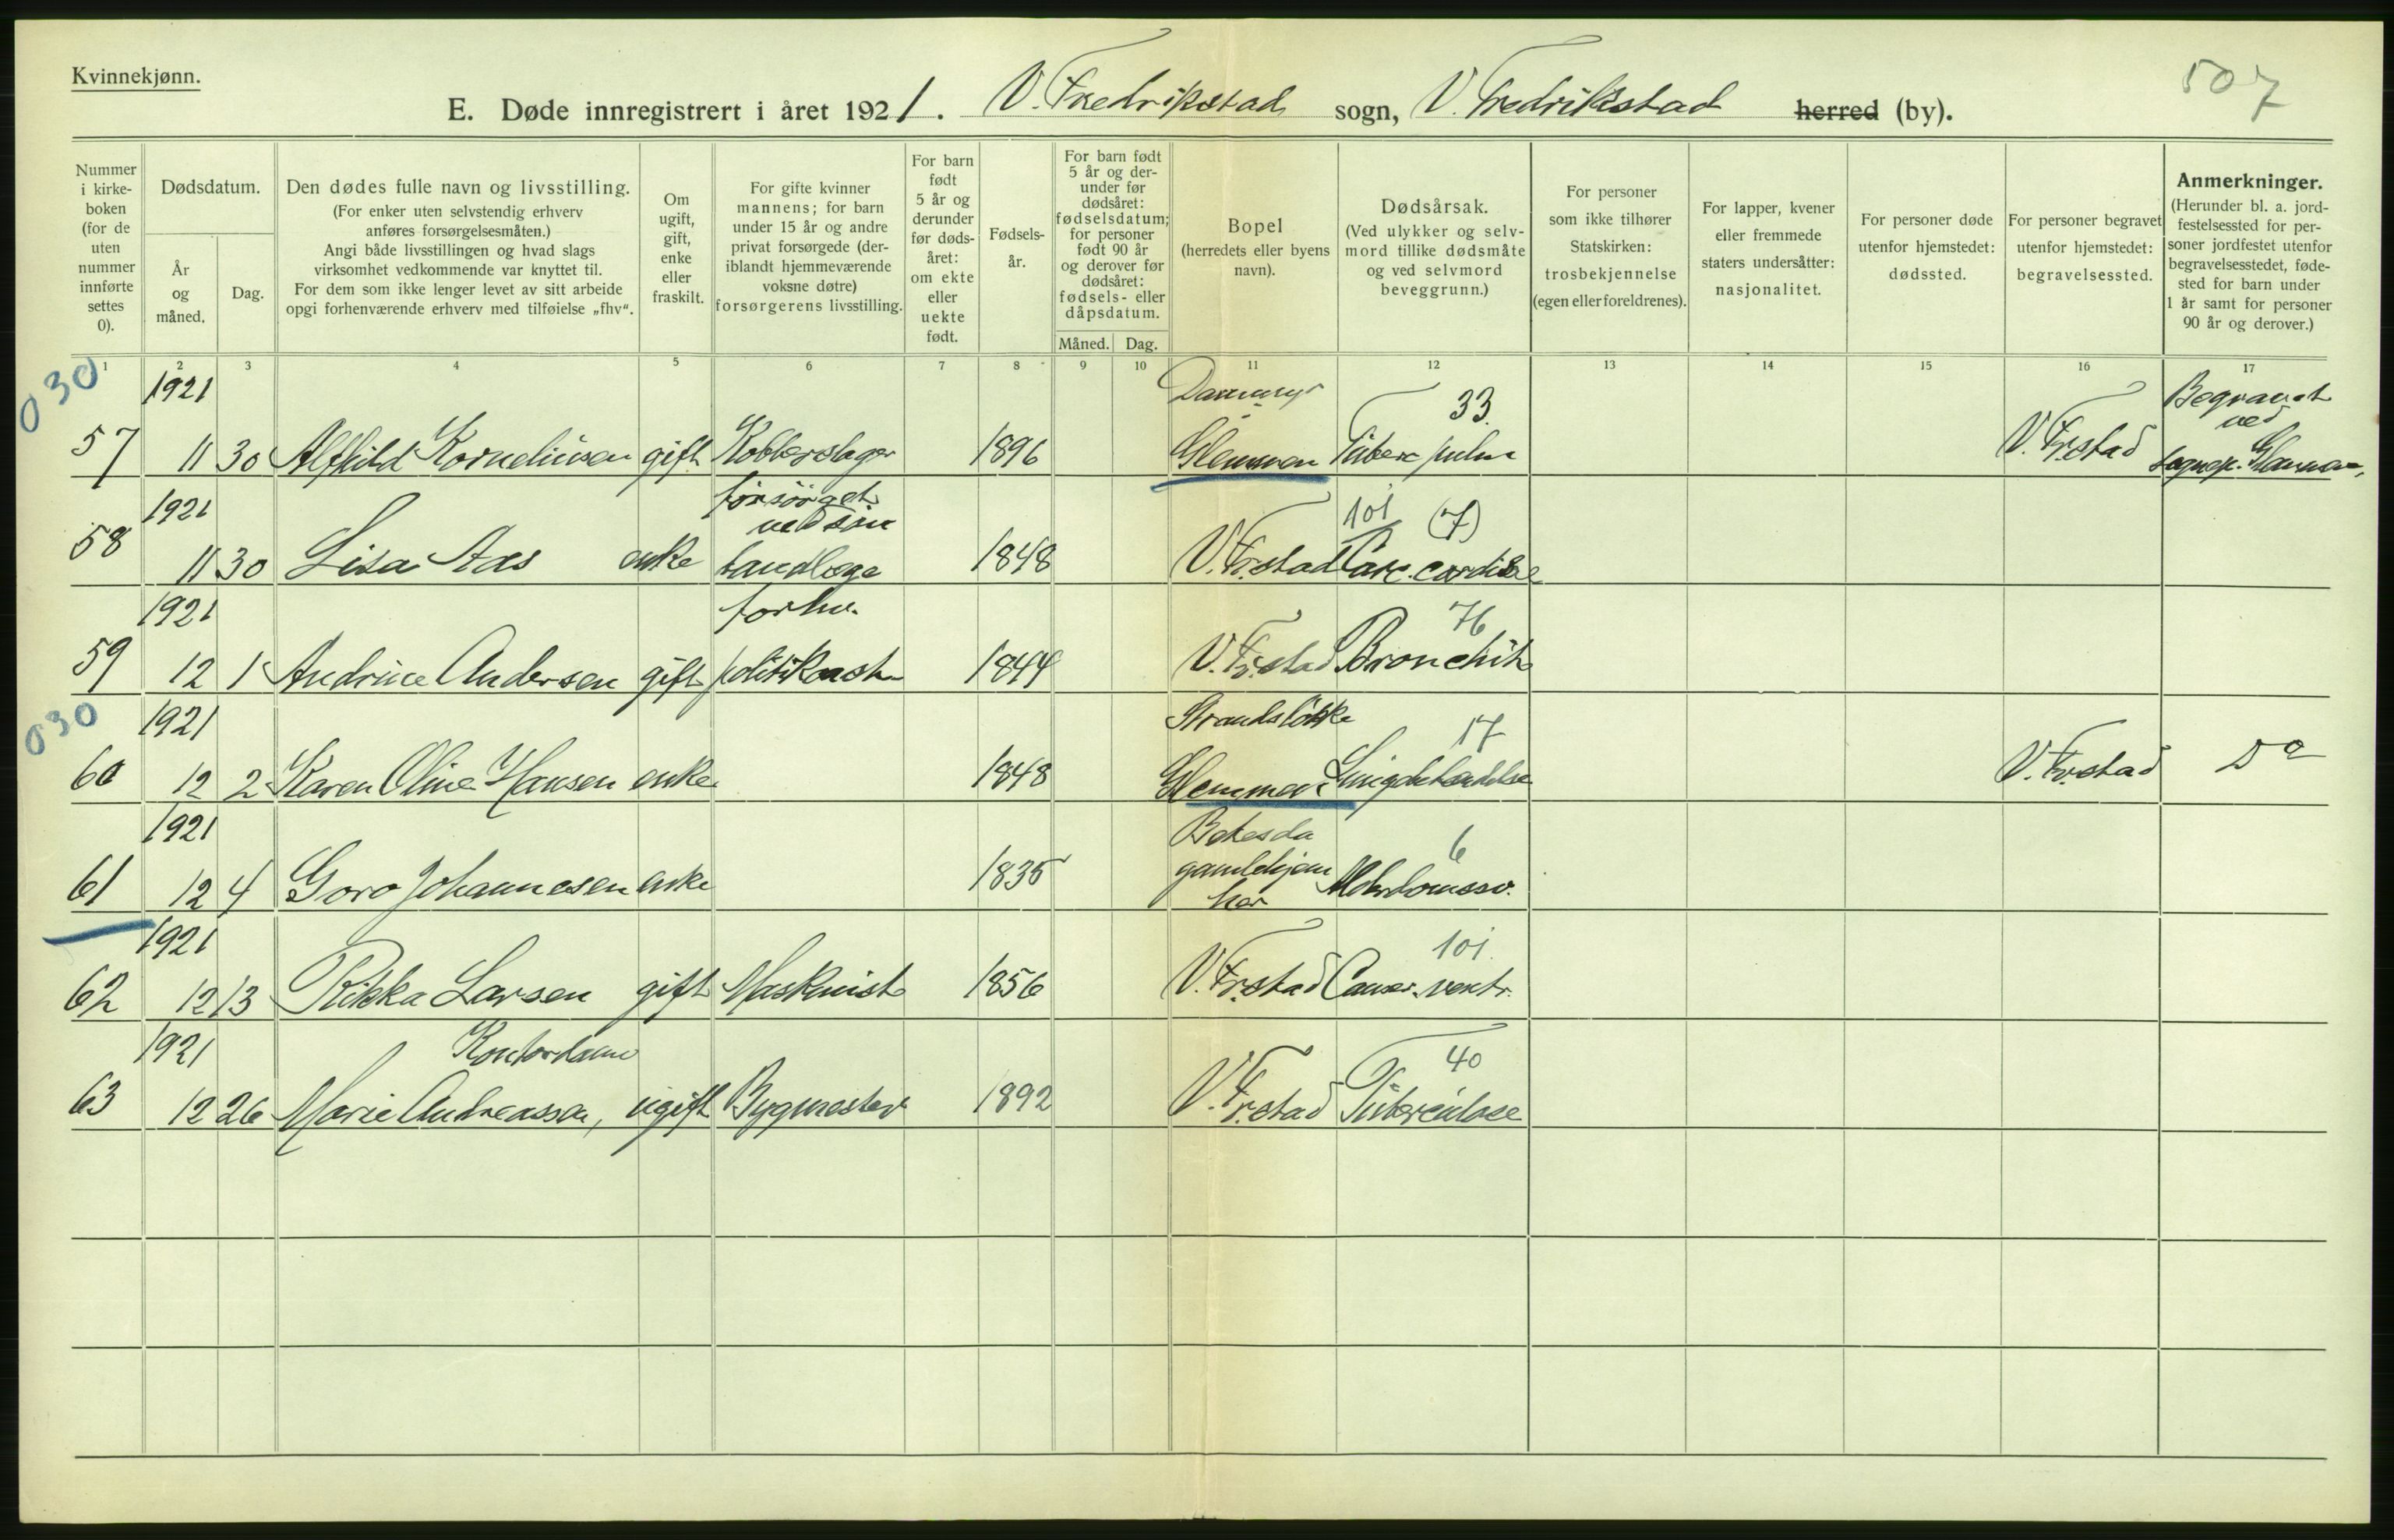 Kvinnekjønn.
507
E. Døde innregistrert i året 1921. V. Fredrikstad sogn, V. Fredrikstad herred (by).
Nummer
i kirke-
boken
(for de
uten
nummer
innførte
settes
0).
Dødsdatum.
År
og
måned.
Dag.
Den dødes fulle navn og livsstilling.
(For enker uten selvstendig erhverv
anføres forsørgelsesmåten.)
Angi både livsstillingen og hvad slags
virksomhet vedkommende var knyttet til.
For dem som ikke lenger levet av sitt arbeide
opgi forhenværende erhverv med tilføielse „fhv“.
Om
ugift,
gift,
enke
eller
fraskilt.
For gifte kvinner
mannens; for barn
under 15 år og andre
privat forsørgede (der-
iblandt hjemmeværende
voksne døtre)
forsørgerens livsstilling.
For barn
født
5 år og
derunder
før døds-
året:
om ekte
eller
uekte
født.
Fødsels-
år.
For barn født
5 år og der-
under før
dødsåret:
fødselsdatum;
for personer
født 90 år
og derover før
dødsåret:
fødsels- eller
dåpsdatum.
Måned. Dag.
Bopel
(herredets eller byens
navn).
Dødsårsak.
(Ved ulykker og selv-
mord tillike dødsmåte
og ved selvmord
beveggrunn.)
For personer
som ikke tilhører
Statskirken:
trosbekjennelse
(egen eller foreldrenes).
For lapper, kvener
eller fremmede
staters undersåtter:
nasjonalitet.
For personer døde
utenfor hjemstedet:
dødssted.
For personer begravet
utenfor hjemstedet:
begravelsessted.
Anmerkninger.
(Herunder bl. a. jord-
festelsessted for per-
soner jordfestet utenfor
begravelsesstedet, føde-
sted for barn under
1 år samt for personer
90 år og derover.)
1 2 3 4 5 6 7 8 9 10 11 12 13 14 15 16 17
030
1921 33. Begravet
ved
57 11 30 Alfhild Korneliusen gift Kobberslager 1896 Glemmen Tuberc pulm V. Fr.stad sognep. Glemmen,
1921 forsörget 101 (7)
ved sin
58 11 30 Lisa Aas enke tandlæge 1848 V. Fr.stad Parc. cordis
1921 forhv. 76
59 12 1 Andrine Andersen gift politikonst 1844 V. Fr.stad Bronchit
030 1921 Strandsløkke 17
60 12 2 Karen Oline Hansen enke 1848 Glemmen V. Fr.stad Do
1921 Betesda 6
gamlehjem
61 12 4 Goro Johannesen enke 1835 her Alderdomssv.
1921 101.
62 12 13 Rikka Larsen gift Maskinist 1856 V. Fr.stad Cancer. ventr.
1921 Kontordame 40
63 12 26 Marie Andreassen, ugift Bygmester 1892 V. Fr.stad Tuberculose